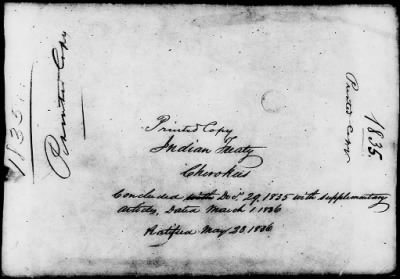 1835.
Printed Copy
Printed Copy
Indian Treaty
Cherokees
Concluded with Dec. 29, 1835 with supplementary
articles, Dated March 1. 1836
Ratified May 23. 1836
Printed Copy
1835.